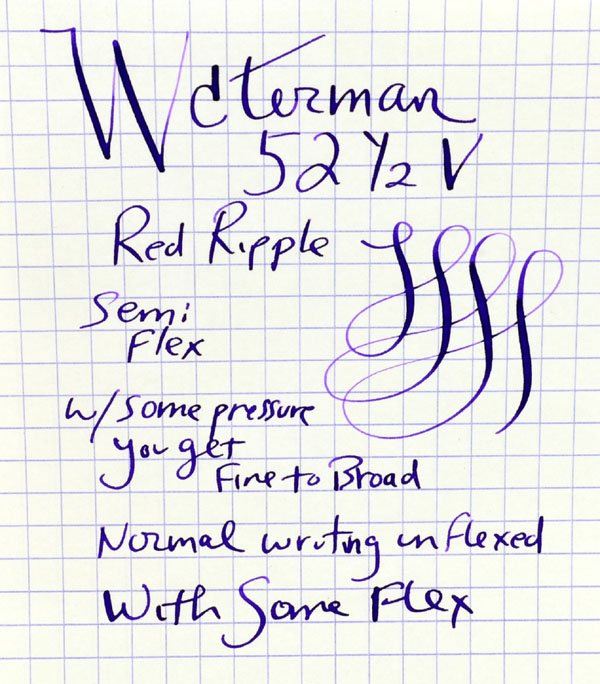 Waterman
52 1/2 V
Red Ripple
Semi
Flex
w/some pressure
you get
Fine to Broad
Normal writing unflexed
With Some Flex